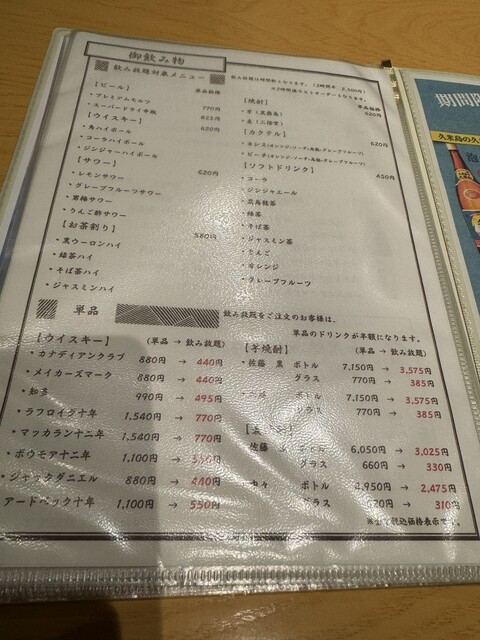 御飲み物
飲み放題対象メニュー
単品価格
【ビール】
・プレミアムモルツ
・スーパードライ中瓶 770円
【ウイスキー】
・角ハイボール 620円
・コーラハイボール
・ジンジャーハイボール
【サワー】
・レモンサワー 620円
・グレープフルーツサワー
・男梅サワー
・りんご酢サワー
【お茶割り】 580円
・黒ウーロンハイ
・緑茶ハイ
・そば茶ハイ
・ジャスミンハイ
飲み放題は時間制となります。(2時間半 2,500円)
※2時間後ラストオーダーとなります。
【焼酎】 単品価格
520円
【カクテル】 620円
・カシス(オレンジ/ソーダ/烏龍/グレープフルーツ)
・ピーチ(オレンジ/ソーダ/烏龍/グレープフルーツ)
【ソフトドリンク】 450円
・コーラ
・ジンジャエール
・黒烏龍茶
・緑茶
・そば茶
・ジャスミン茶
・りんご
・オレンジ
・グレープフルーツ
単品
飲み放題をご注文のお客様は、
単品のドリンクが半額になります。
【ウイスキー】 (単品 → 飲み放題)
・カナディアンクラブ 880円 → 440円
・メイカーズマーク 880円 → 440円
・知多 990円 → 495円
・ラフロイグ十年 1,540円 → 770円
・マッカラン十二年 1,540円 → 770円
・ボウモア十二年 1,100円 → 550円
・ジャックダニエル 880円 → 440円
アードベック十年 1,100円 → 550円
【芋焼酎】 (単品 → 飲み放題)
・佐藤 黒 ボトル 7,150円 → 3,575円
グラス 770円 → 385円
ボトル 7,150円 → 3,575円
グラス 770円 → 385円
佐藤 ボトル 6,050円 → 3,025円
グラス 660円 → 330円
ボトル 4,950円 → 2,475円
グラス 620円 → 310円
※全て税込価格表示です。
期間限
久米島の久